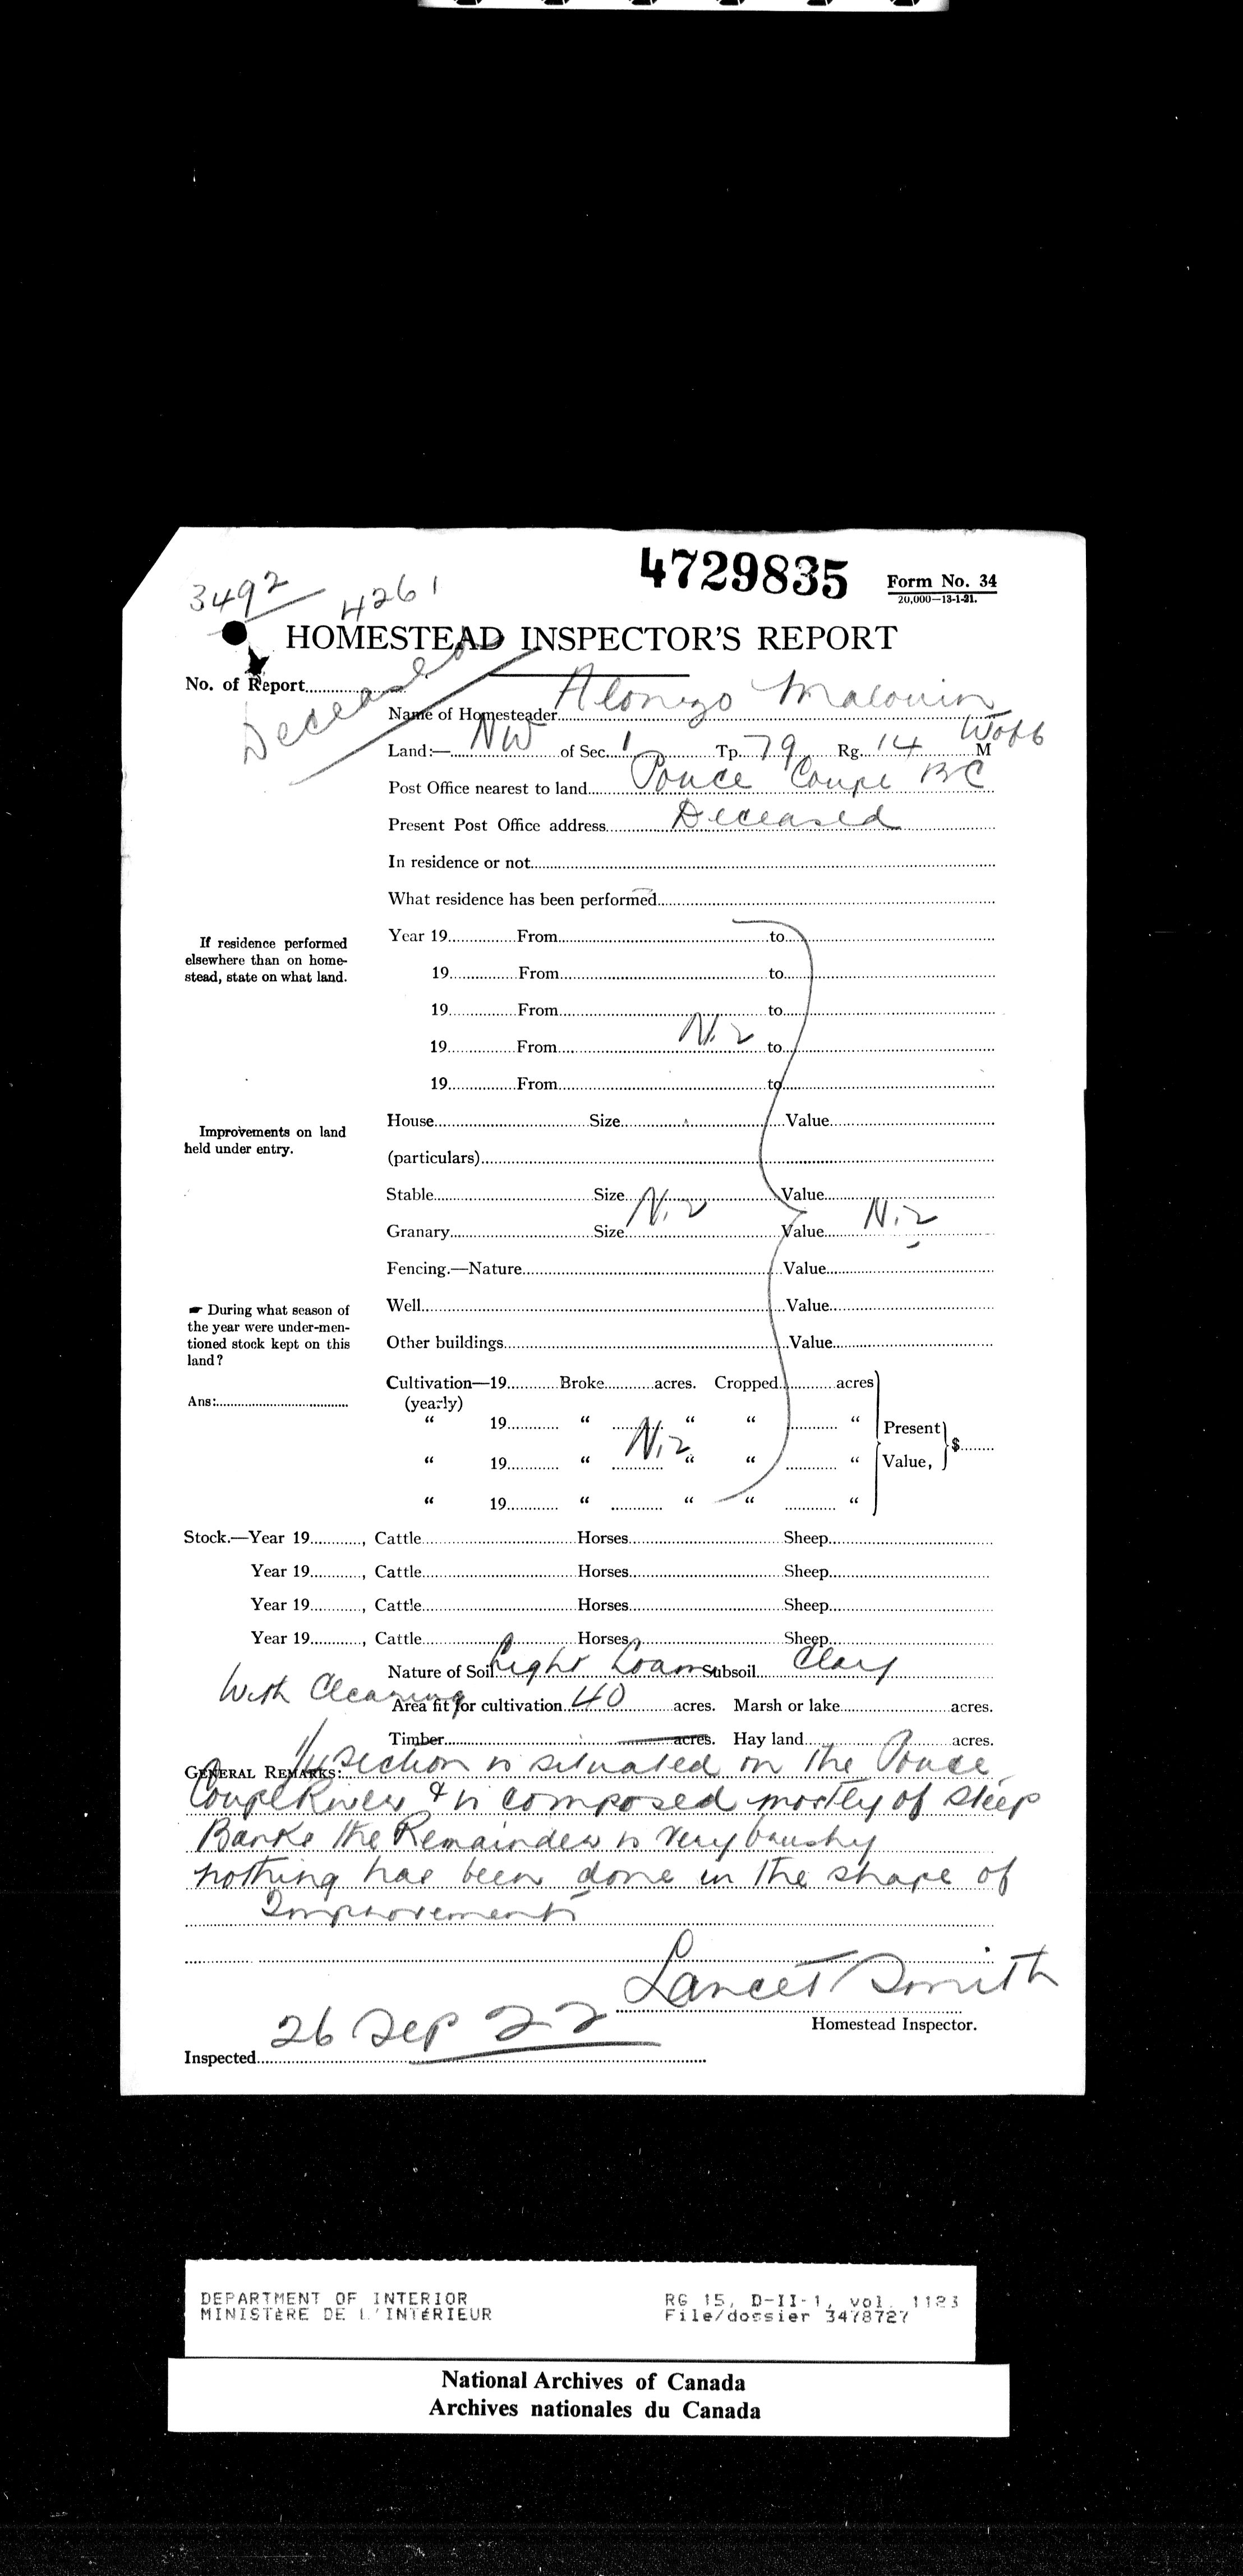 4729835
Form No. 34
20,000—13-1-21.
3492
4261
HOMESTEAD INSPECTOR'S REPORT
No. of Report
Deceased
Name of Homesteader Alonzo Malouin
Land:— NW of Sec. 1 Tp. 79 Rg. 14 W of 6 M
Post Office nearest to land Pouce Coupe BC
Present Post Office address Deceased
In residence or not
What residence has been performed
If residence performed elsewhere than on home-stead, state on what land.
Year 19 From to
19 From to
19 From to
19 From Nil to
19 From to
Improvements on land held under entry.
House Size Value
(particulars)
Stable Size Nil Value Nil
Granary Size Value
Fencing.—Nature Value
Well Value
Other buildings Value
☛ During what season of the year were under-men-tioned stock kept on this land?
Ans:
Cultivation—19 Broke acres. Cropped acres
(yearly)
" 19 " " " "
" 19 " Nil " " "
" 19 " " " "
Present Value, $
Stock.—Year 19, Cattle Horses Sheep
Year 19, Cattle Horses Sheep
Year 19, Cattle Horses Sheep
Year 19, Cattle Horses Sheep
Nature of Soil Light Loam Subsoil Clay
With Clearing
Area fit for cultivation 40 acres. Marsh or lake acres.
Timber acres. Hay land acres.
GENERAL REMARKS: 1/4 Section is situated on the Pouce
Coupe River & is composed mostly of steep
Banks the Remainder is very brushy
nothing has been done in the shape of
Improvements
Lancet Smith
Homestead Inspector.
Inspected 26 Sep 22
DEPARTMENT OF INTERIOR
MINISTÈRE DE L'INTÉRIEUR
RG 15, D-II-1, vol. 1123
File/dossier 3478727
National Archives of Canada
Archives nationales du Canada